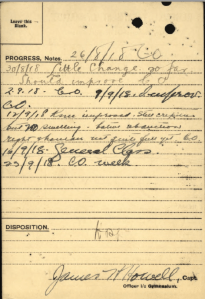 Leave this
Blank.
PROGRESS, Notes 26/8/18 C.O.
20/8/18 Little change so far
Should improve
2.9.18. C.O. 9/9/18
C.O.
12/9/18 Knee improved. Still
but no swelling.
right shoulder not quite full yet. C.O.
16/9/18. General Class
23/9/18 C.O. week
DISPOSITION.
James W Howell, Capt.
Officer i/c Gymnasium.